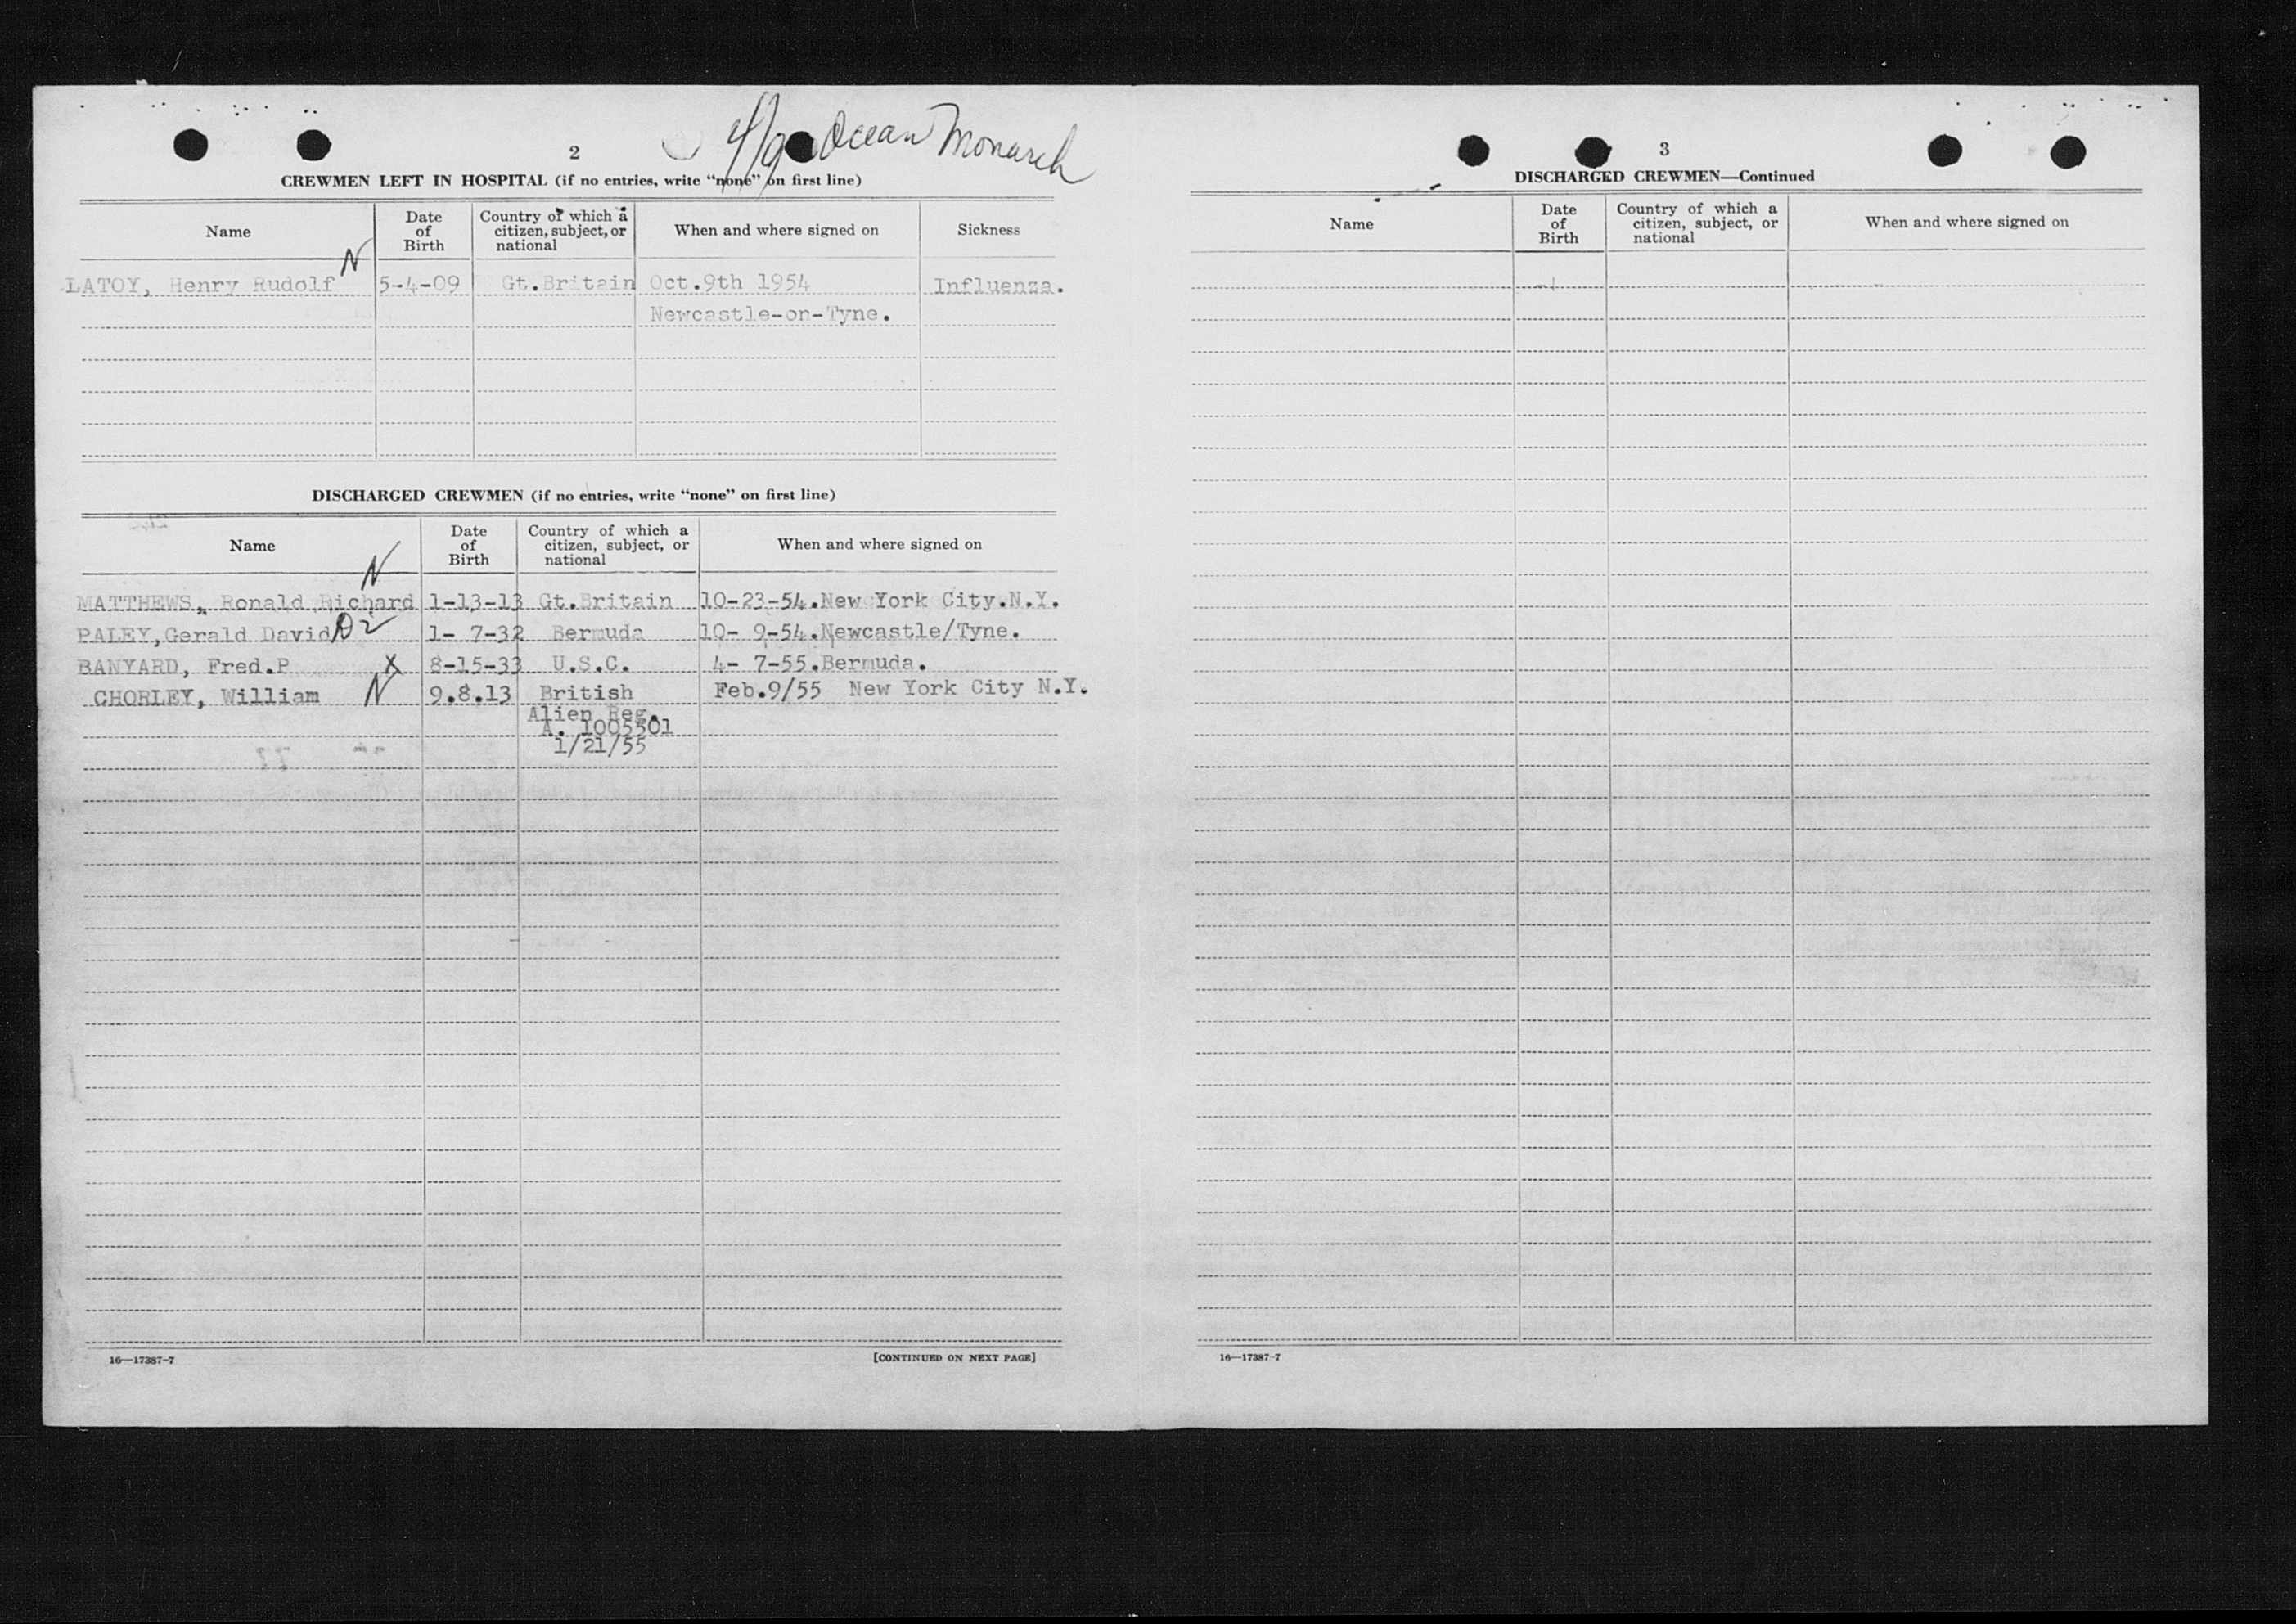 2
4/9 Ocean Monarch
CREWMEN LEFT IN HOSPITAL (if no entries, write “none” on first line)
Name
Date of Birth
Country of which a citizen, subject, or national
When and where signed on
Sickness
N
LATOY, Henry Rudolf 5-4-09 Gt.Britain Oct.9th 1954 Influenza.
Newcastle-on-Tyne.
DISCHARGED CREWMEN (if no entries, write “none” on first line)
Name
Date of Birth
Country of which a citizen, subject, or national
When and where signed on
N
MATTHEWS, Ronald Richard 1-13-13 Gt.Britain 10-23-54.New York City.N.Y.
PALEY,Gerald David D2 1- 7-32 Bermuda 10- 9-54.Newcastle/Tyne.
BANYARD, Fred.P X 8-15-33 U.S.C. 4- 7-55.Bermuda.
CHORLEY, William N 9.8.13 British Feb.9/55 New York City N.Y.
Alien Reg.
A. 1005501
1/21/55
16—17387-7
[CONTINUED ON NEXT PAGE]
3
DISCHARGED CREWMEN—Continued
Name
Date of Birth
Country of which a citizen, subject, or national
When and where signed on
16—17387-7